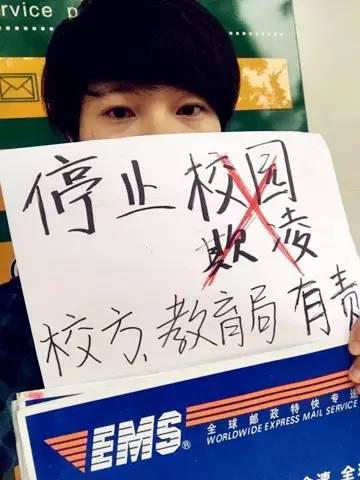 ervice p
停止校园
欺凌
校方、教育局有责
EMS®
全球邮政特快专递
WORLDWIDE EXPRESS MAIL SERVICE